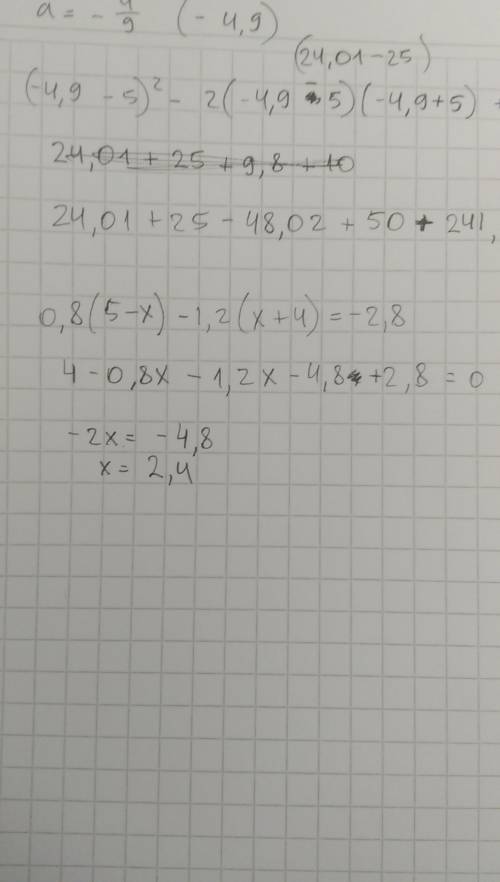 a = - 4/9 (- 4,9)
(24,01-25)
(-4,9 - 5)² - 2(-4,9 - 5)(-4,9+5) +
24,01 + 25 + 9,8 + 10
24,01 + 25 - 48,02 + 50 + 241,
0,8(5-x) -1,2(x+4) = -2,8
4 - 0,8x - 1,2x - 4,8 +2,8 = 0
-2x = -4,8
x = 2,4